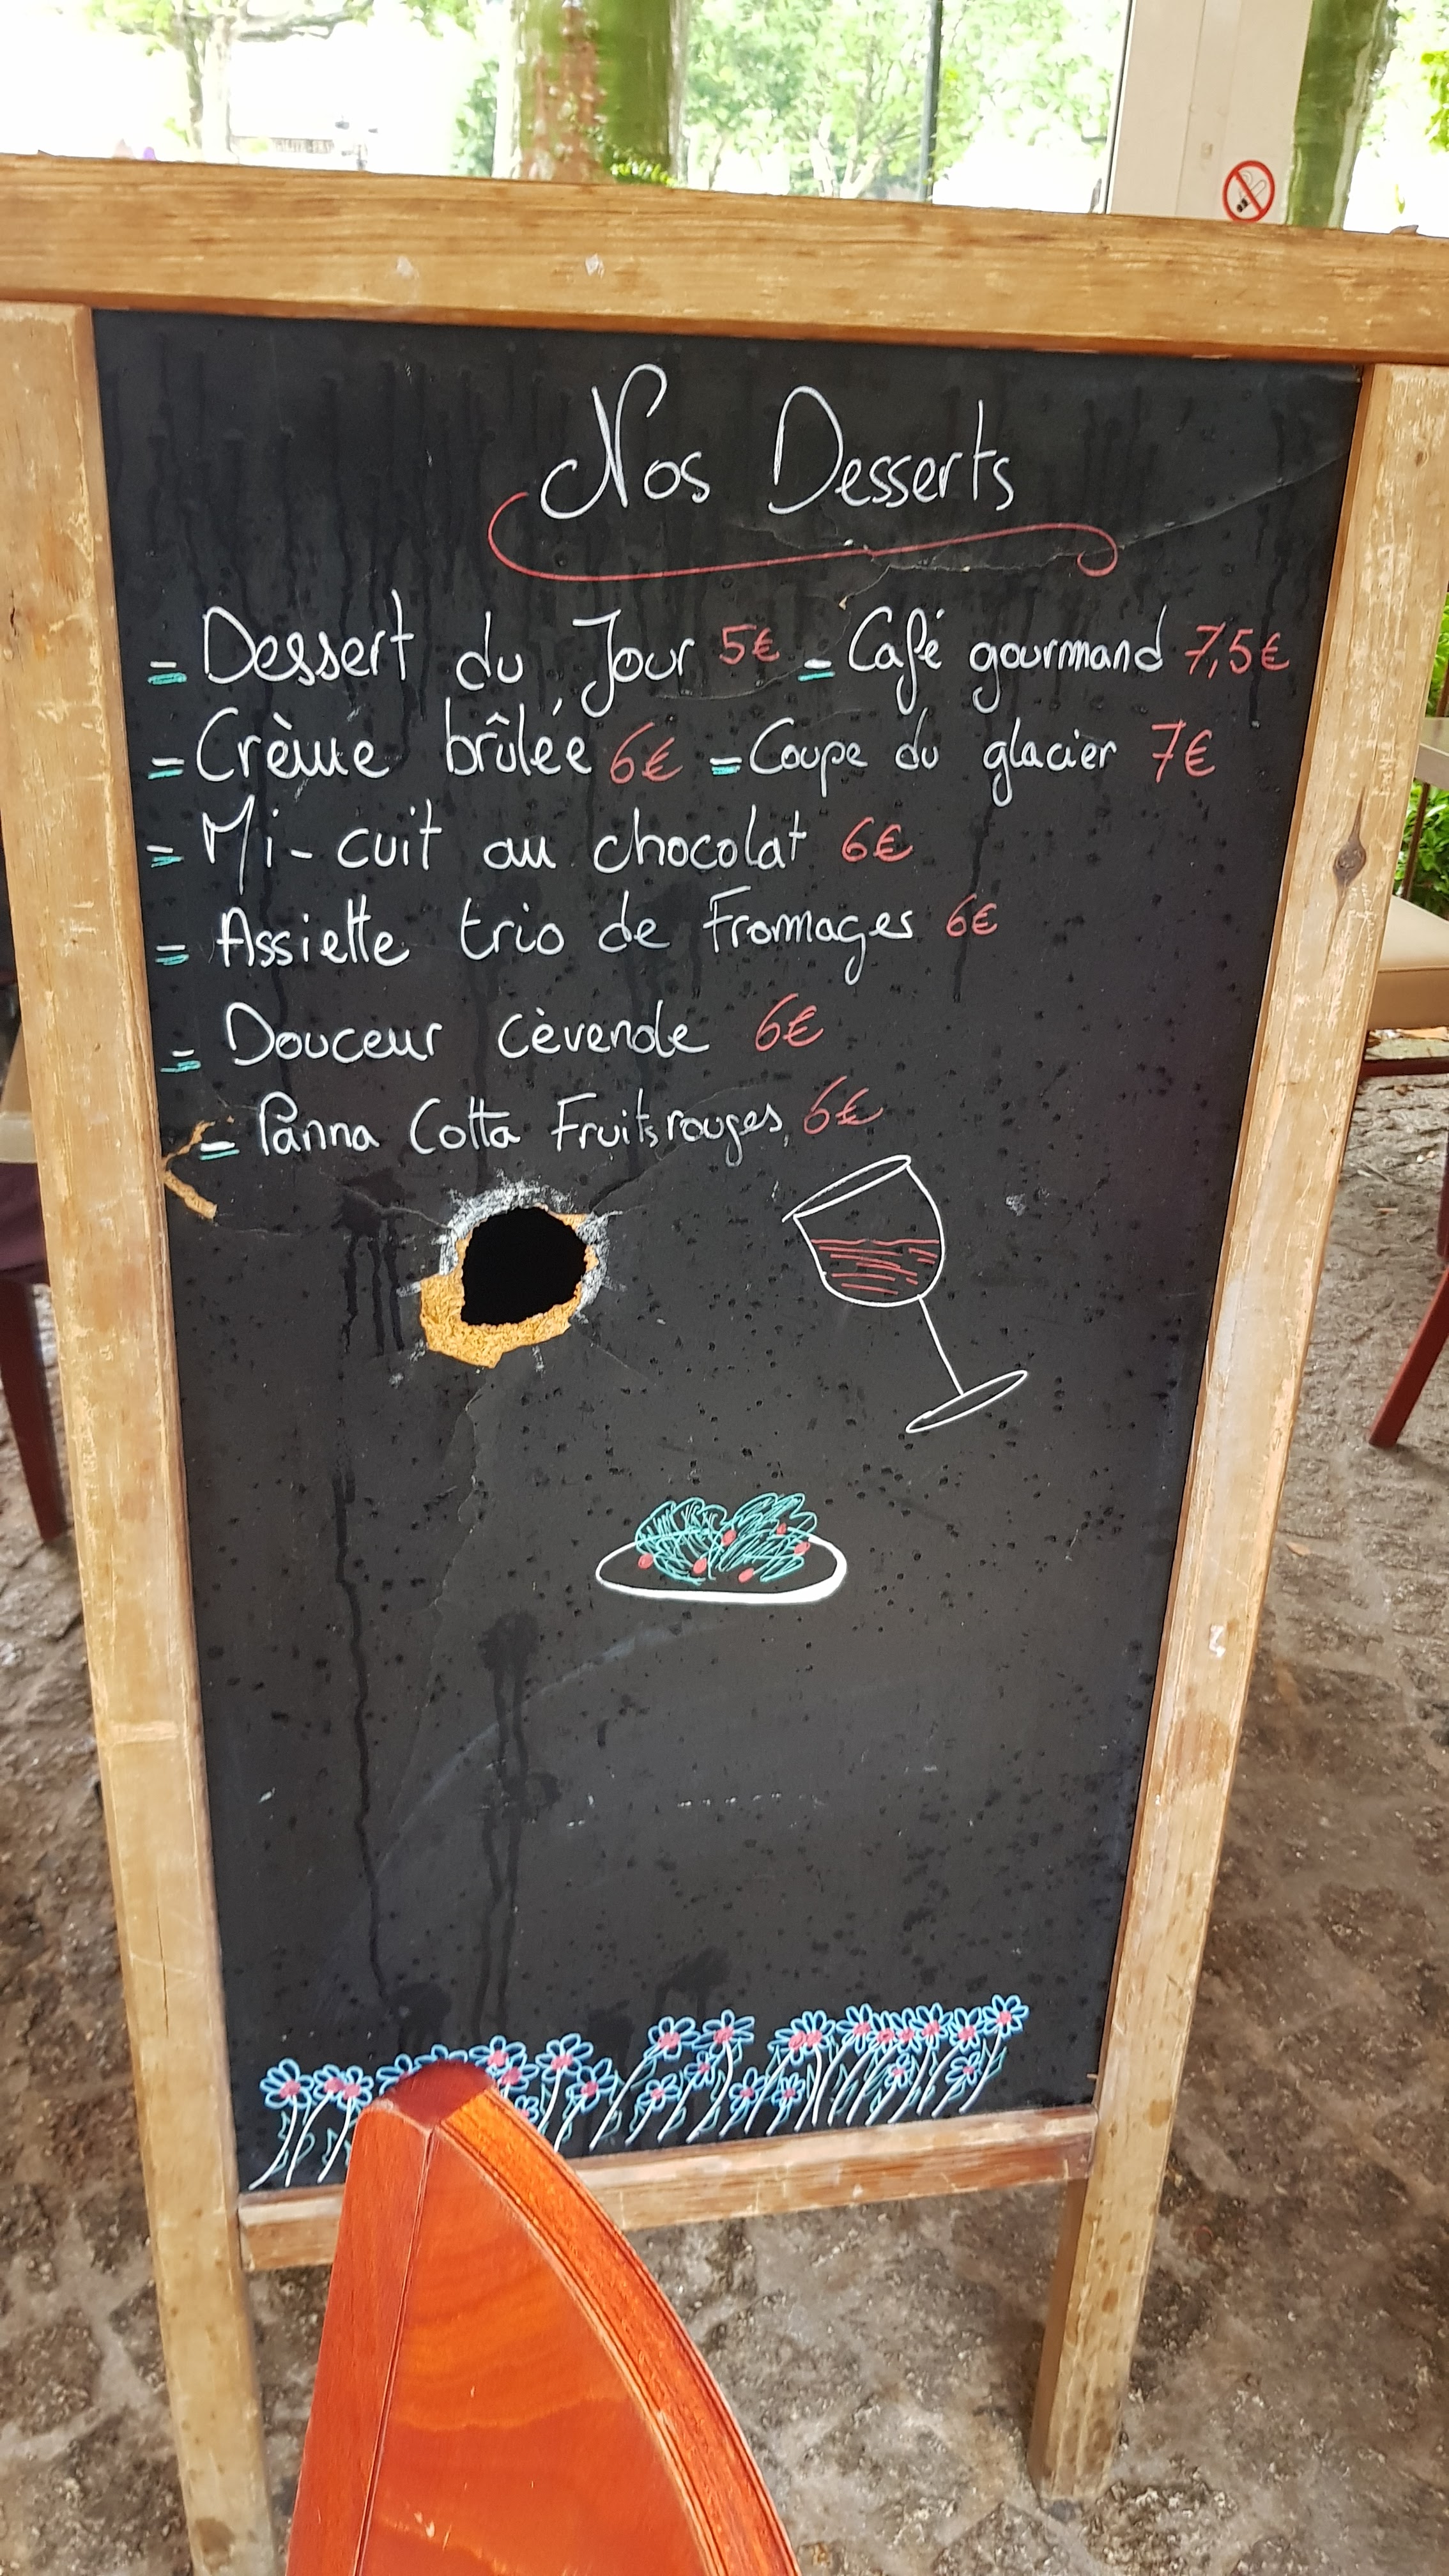 Nos Desserts
= Dessert du Jour 5€ = Café gourmand 7,5€
= Crème brûlée 6€ = Coupe du glacier 7€
= Mi-cuit au chocolat 6€
= Assiette trio de Fromages 6€
= Douceur cèvenole 6€
= Panna Cotta Fruits rouges 6€